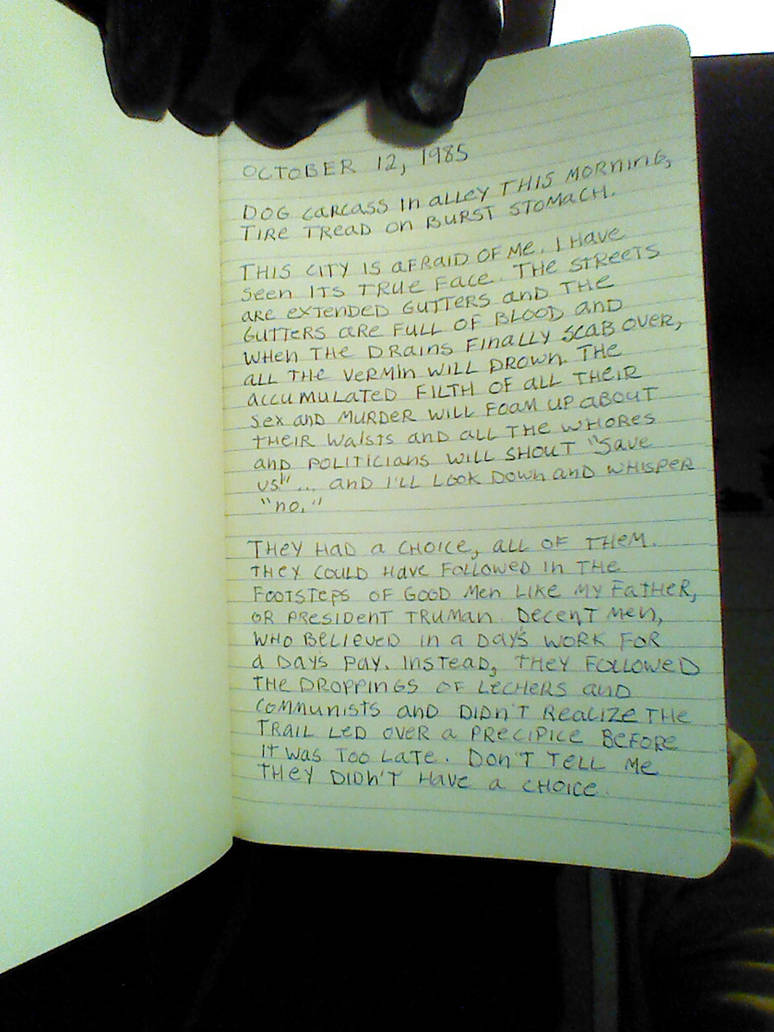 OCTOBER 12, 1985
DOG CARCASS IN ALLEY THIS MORNING,
TIRE TREAD ON BURST STOMACH.
THIS CITY IS AFRAID OF ME. I HAVE
SEEN ITS TRUE FACE. THE STREETS
ARE EXTENDED GUTTERS AND THE
GUTTERS ARE FULL OF BLOOD AND
WHEN THE DRAINS FINALLY SCAB OVER,
ALL THE VERMIN WILL DROWN. THE
ACCUMULATED FILTH OF ALL THEIR
SEX AND MURDER WILL FOAM UP ABOUT
THEIR WAISTS AND ALL THE WHORES
AND POLITICIANS WILL SHOUT "SAVE
US!"... AND I'LL LOOK DOWN AND WHISPER
"NO."
THEY HAD A CHOICE, ALL OF THEM.
THEY COULD HAVE FOLLOWED IN THE
FOOTSTEPS OF GOOD MEN LIKE MY FATHER,
OR PRESIDENT TRUMAN. DECENT MEN,
WHO BELIEVED IN A DAY'S WORK FOR
A DAYS PAY. INSTEAD, THEY FOLLOWED
THE DROPPINGS OF LECHERS AND
COMMUNISTS AND DIDN'T REALIZE THE
TRAIL LED OVER A PRECIPICE BEFORE
IT WAS TOO LATE. DON'T TELL ME
THEY DIDN'T HAVE A CHOICE.